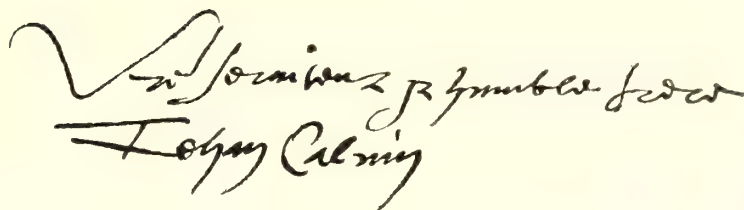 Vre serviteur & humble frere
Jehan Calvin